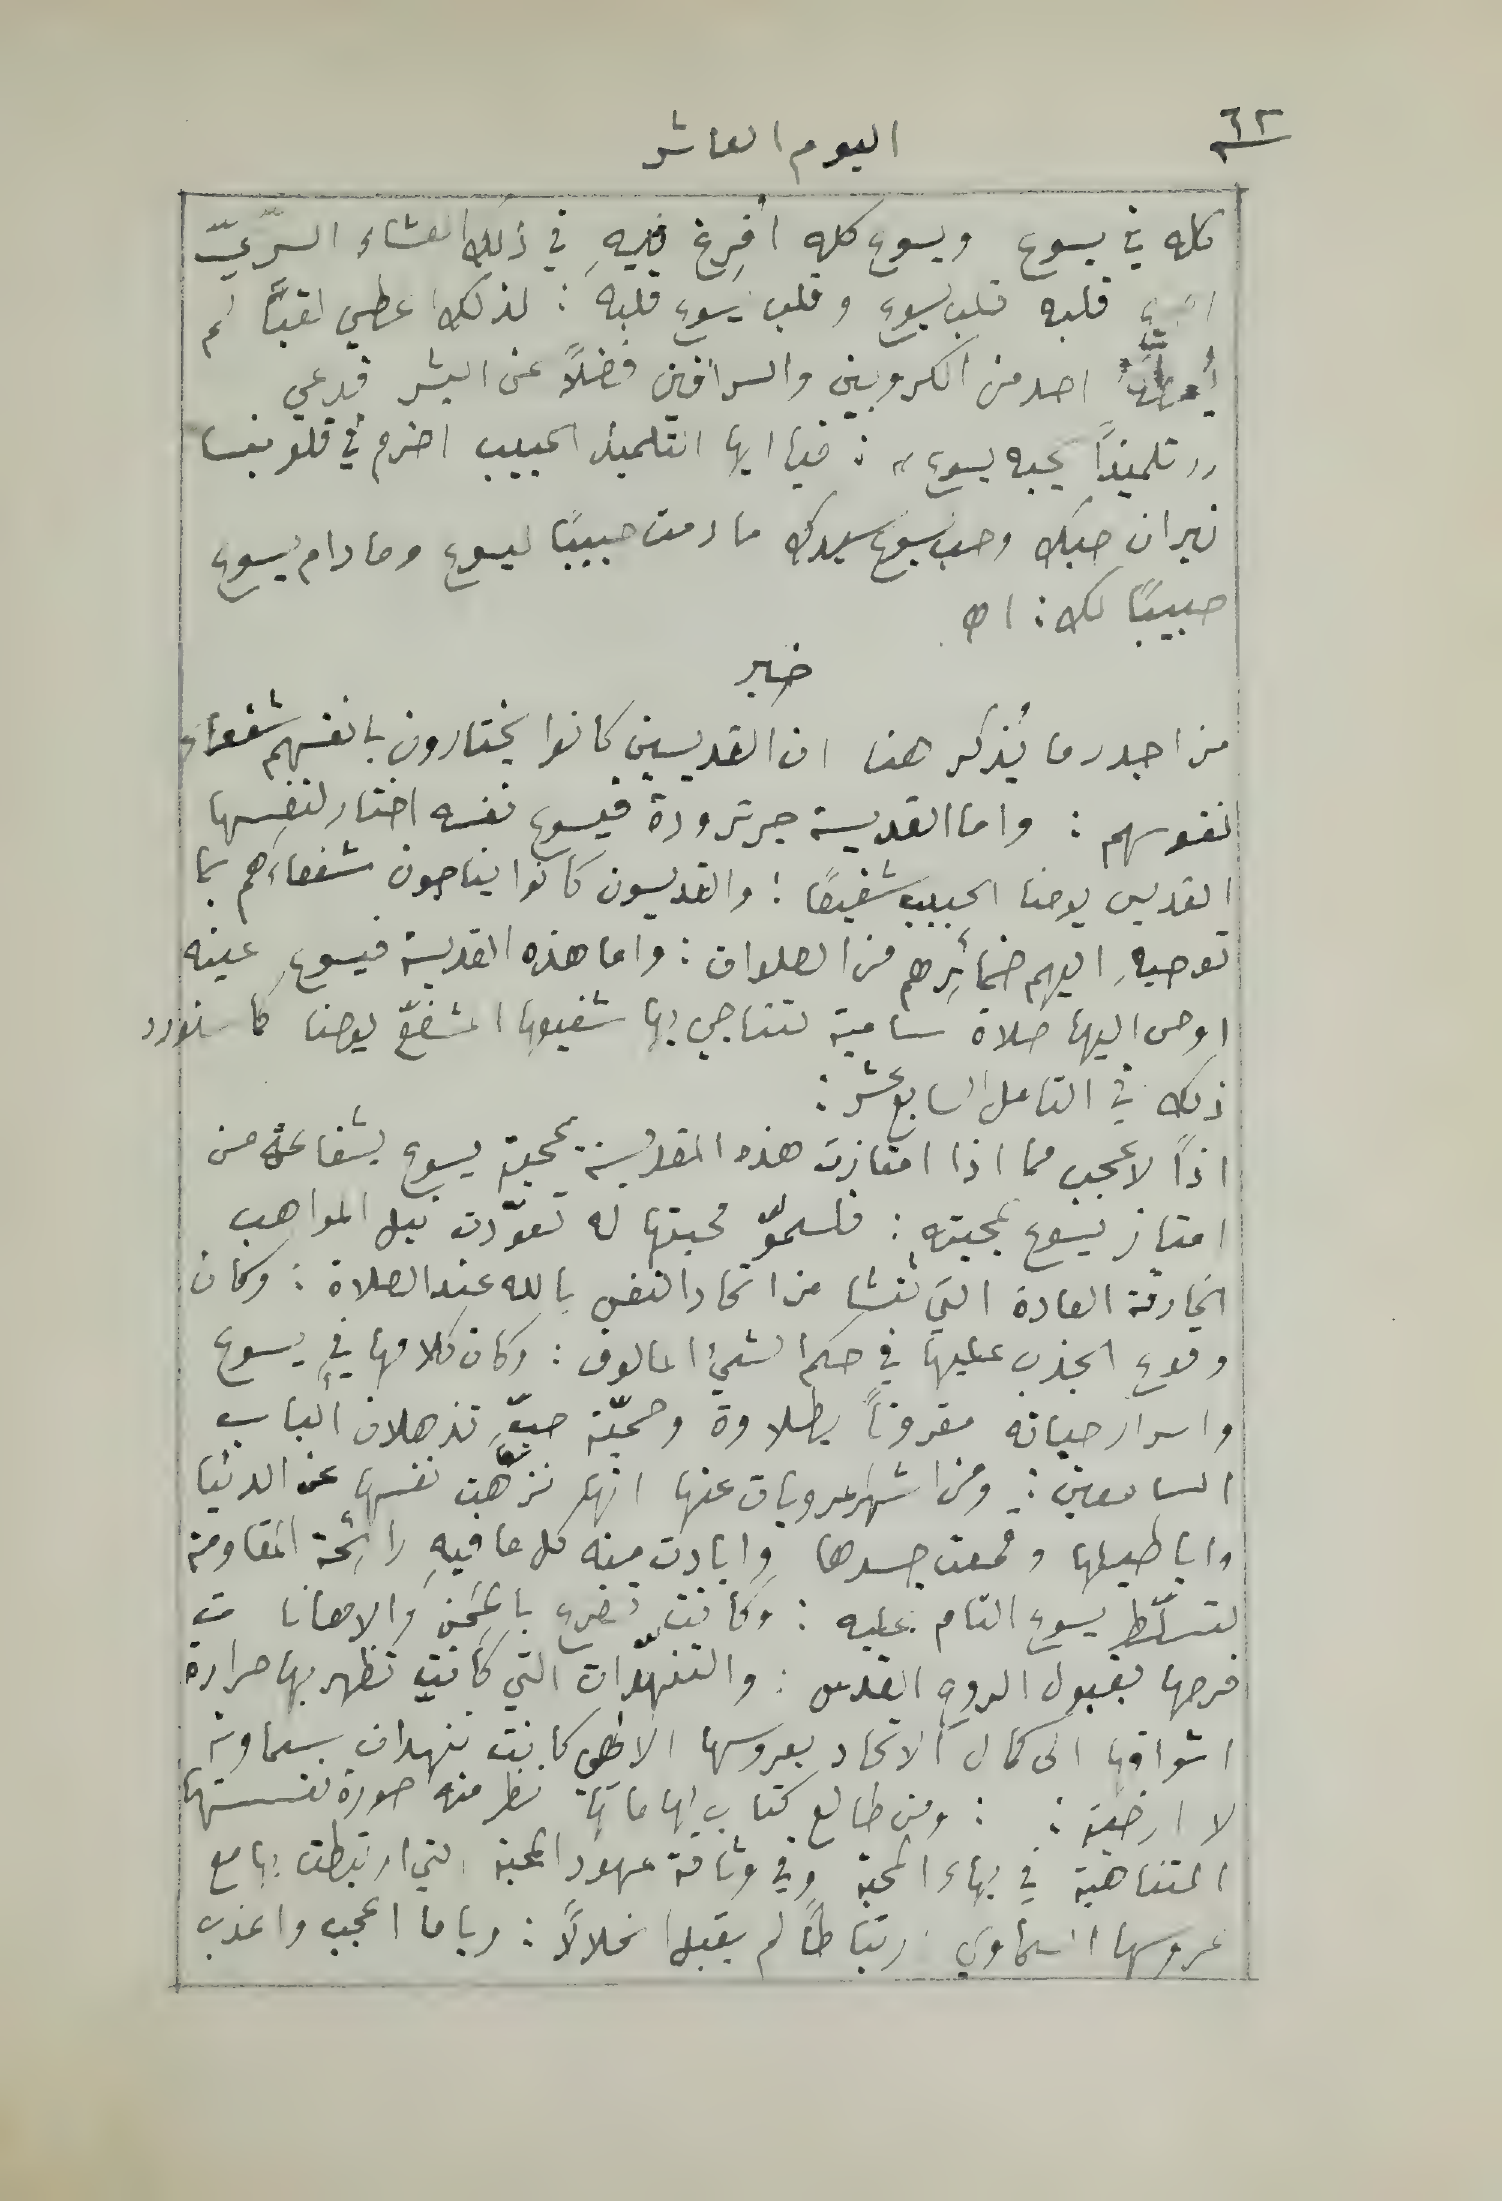 ٦٢
اليوم العاشر
كله في يسوع ويسوع كله أُفرِغ فيهِ في ذلك العشاء السرّيّ
قلبه قلب يسوع وقلب يسوع قلبه : لذلك اعطي لقبًا لم
احد من الكروبين والسرافين فضلاً عن البشر فدعي
"تلميذاً يحبه يسوع" : فيا ايها التلميذ الحبيب اضرم في قلوبنا
نيران حبك وحب يسوع سيدك ما دمت حبيبًا ليسوع وما دام يسوع
حبيبًا لك : اهـ
خبر
من اجدر ما يُذكر هنا ان القديسين كانوا يختارون بانفسهم شفعاء
نفوسهم : واما القديسة جرترودة فيسوع نفسه اختار لنفسها
القديس يوحنا الحبيب شفيعًا : والقديسون كانوا يناجون شفعاءَهم بما
توحيهِ اليهم ضمائِرهم من الصلوات : واما هذه القديسة فيسوع عينه
اوحى اليها صلاة سامية لتناجي بها شفيعها المشفّع يوحنا كما سنورد
ذلك في التامل السابع عشر :
اذاً لا عجب مما اذا امتازت هذه القديسة بمحبة يسوع بشفاعة من
امتاز يسوع بمحبته : فلسموّ محبتها له تعوّدت نيل المواهب
الخارقة العادة التي تنشا من اتحاد النفس بالله عند الصلاة : وكان
وقوع الجذب عليها في حكم الشيء المالوف : وكان كلامها في يسوع
واسرار حياته مقروناً بطلاوة وحميّة حبّ تذهلان ألباب
السامعين : ومن اشهر مرويات عنها انها نزّهت نفسها عن الدنيا
واباطيلها وقمعت جسدها وابادت منه كل ما فيهِ رائِحة المقاومة
لتسلّط يسوع التام عليه : وكانت تفرح بالمحن والاهانات
فرحها بقبول الروح القدس : والتنهّدات التي كانت تظهر بها حرارة
اشواقها الى كمال الاتحاد بعروسها الالهي كانت تنهدات سماوية
لا ارضية : : ومن طالع كتاب الهاماتها نظر منه صورة نفسها
المتناهية في بهاء المحبة وفي وثاقة عهود المحبة التي ارتبطت بها مع
عروسها السماوي ارتباطًا لم يقبل انحلالاً : ويا ما اعجب واعذب